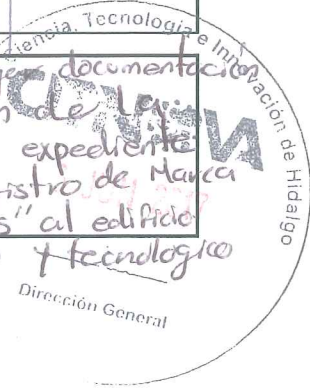 Ciencia, Tecnología e Innovación de Hidalgo
documentación
de la
expediente
istro de Marca
s" al edificio
y tecnologico
Dirección General